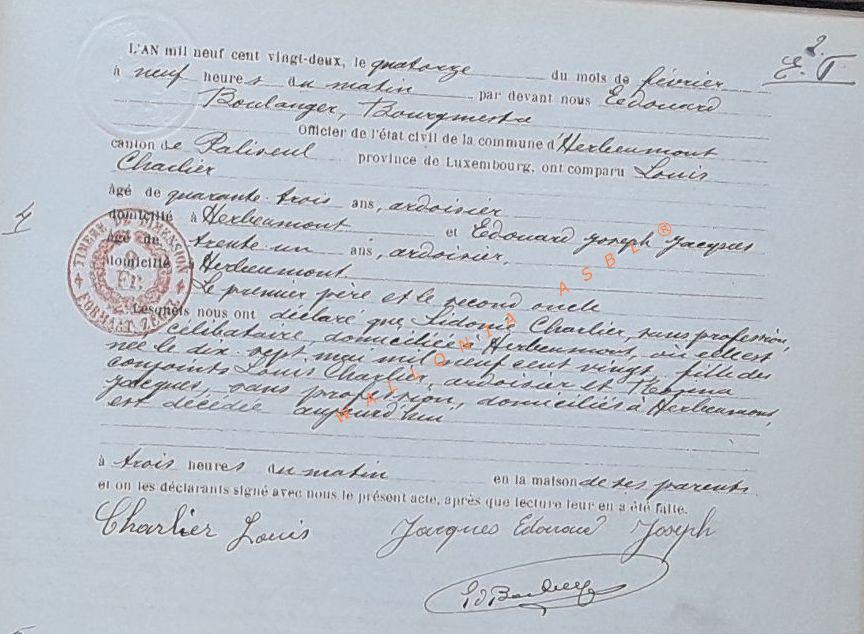 2.
E. T
L'AN mil neuf cent vingt-deux, le quatorze du mois de février
à neuf heures du matin par devant nous Edouard
Boulanger, Bourgmestre
Officier de l'état civil de la commune d'Herbeumont
canton de Paliseul province de Luxembourg, ont comparu Louis
Charlier
âgé de quarante-trois ans, ardoisier
domicilié à Herbeumont et Edouard Joseph Jacques
âgé de trente-un ans, ardoisier,
domicilié à Herbeumont
Le premier père et le second oncle
Lesquels nous ont déclaré que Sidonie Charlier, sans profession,
célibataire, domiciliée à Herbeumont, où elle est
née le dix-sept mai mil neuf cent vingt, fille des
conjoints Louis Charlier, ardoisier et
Jacques, sans profession, domiciliés à Herbeumont,
est décédée aujourd'hui
à trois heures du matin en la maison de ses parents.
et on les déclarants signé avec nous le présent acte, après que lecture leur en a été faite.
Charlier Louis Jacques Edouard Joseph
4
TIMBRE DE DIMENSION
2 Fr.
FORMAT
WALLONIA ASBL®